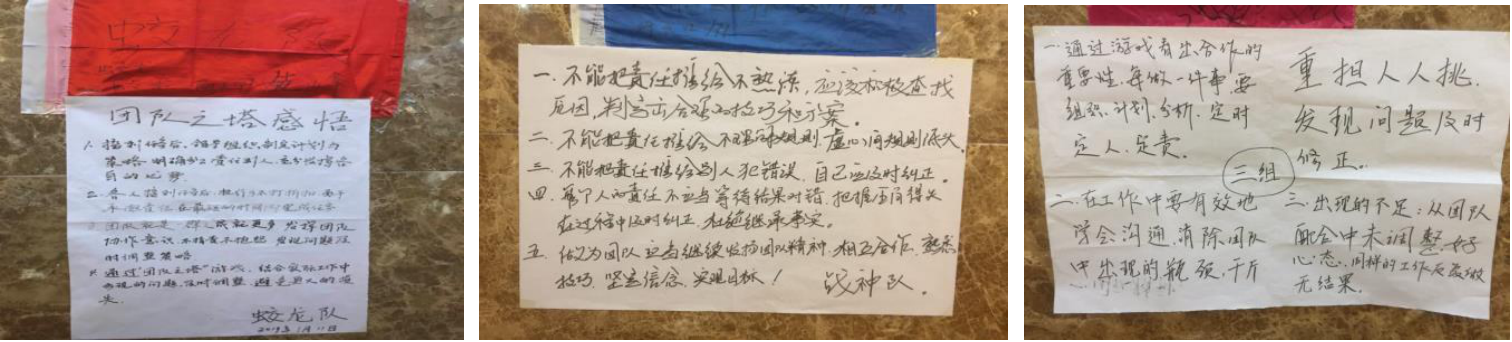 团队之塔感悟
1. 接到任务后,领导组织,制定计划与
策略,明确分工责任到人,充分发挥各
员的优势
二. 各人接到任务后,
任务
3. 团队就是 成就更多 发挥团队
协作意识,不指责不抱怨,发现问题及
时调整策略
通过“团队之塔”游戏,结合实际工作中
出现的问题,及时调整,避免更大的损
失.
蛟龙队
2019年1月11日
一. 不能把责任推给不熟悉,应该积极查找
原因,制定出合理的技巧和方案。
二. 不能把责任推给不理解规则,虚心问规则
三. 不能把责任推给别人犯错误,自己应及时纠正.
四. 每个人的责任不应当等待结果对错,把握
在过程中及时纠正,杜绝继续事实。
五. 作为团队应当继续发扬团队精神,相互合作,熟悉
技巧,坚定信念,实现目标!
战神队.
一.通过游戏看出合作的
重要性.每做一件事要
组织.计划.分析.定时
定人.定责.
二.在工作中要有效地
学会沟通,消除团队
中出现的瓶颈,千斤
重担人人挑.
发现问题及时
修正..
三组
三.出现的不足:从团队
配合中未调整好
心态,同样的工作反复做
无结果.